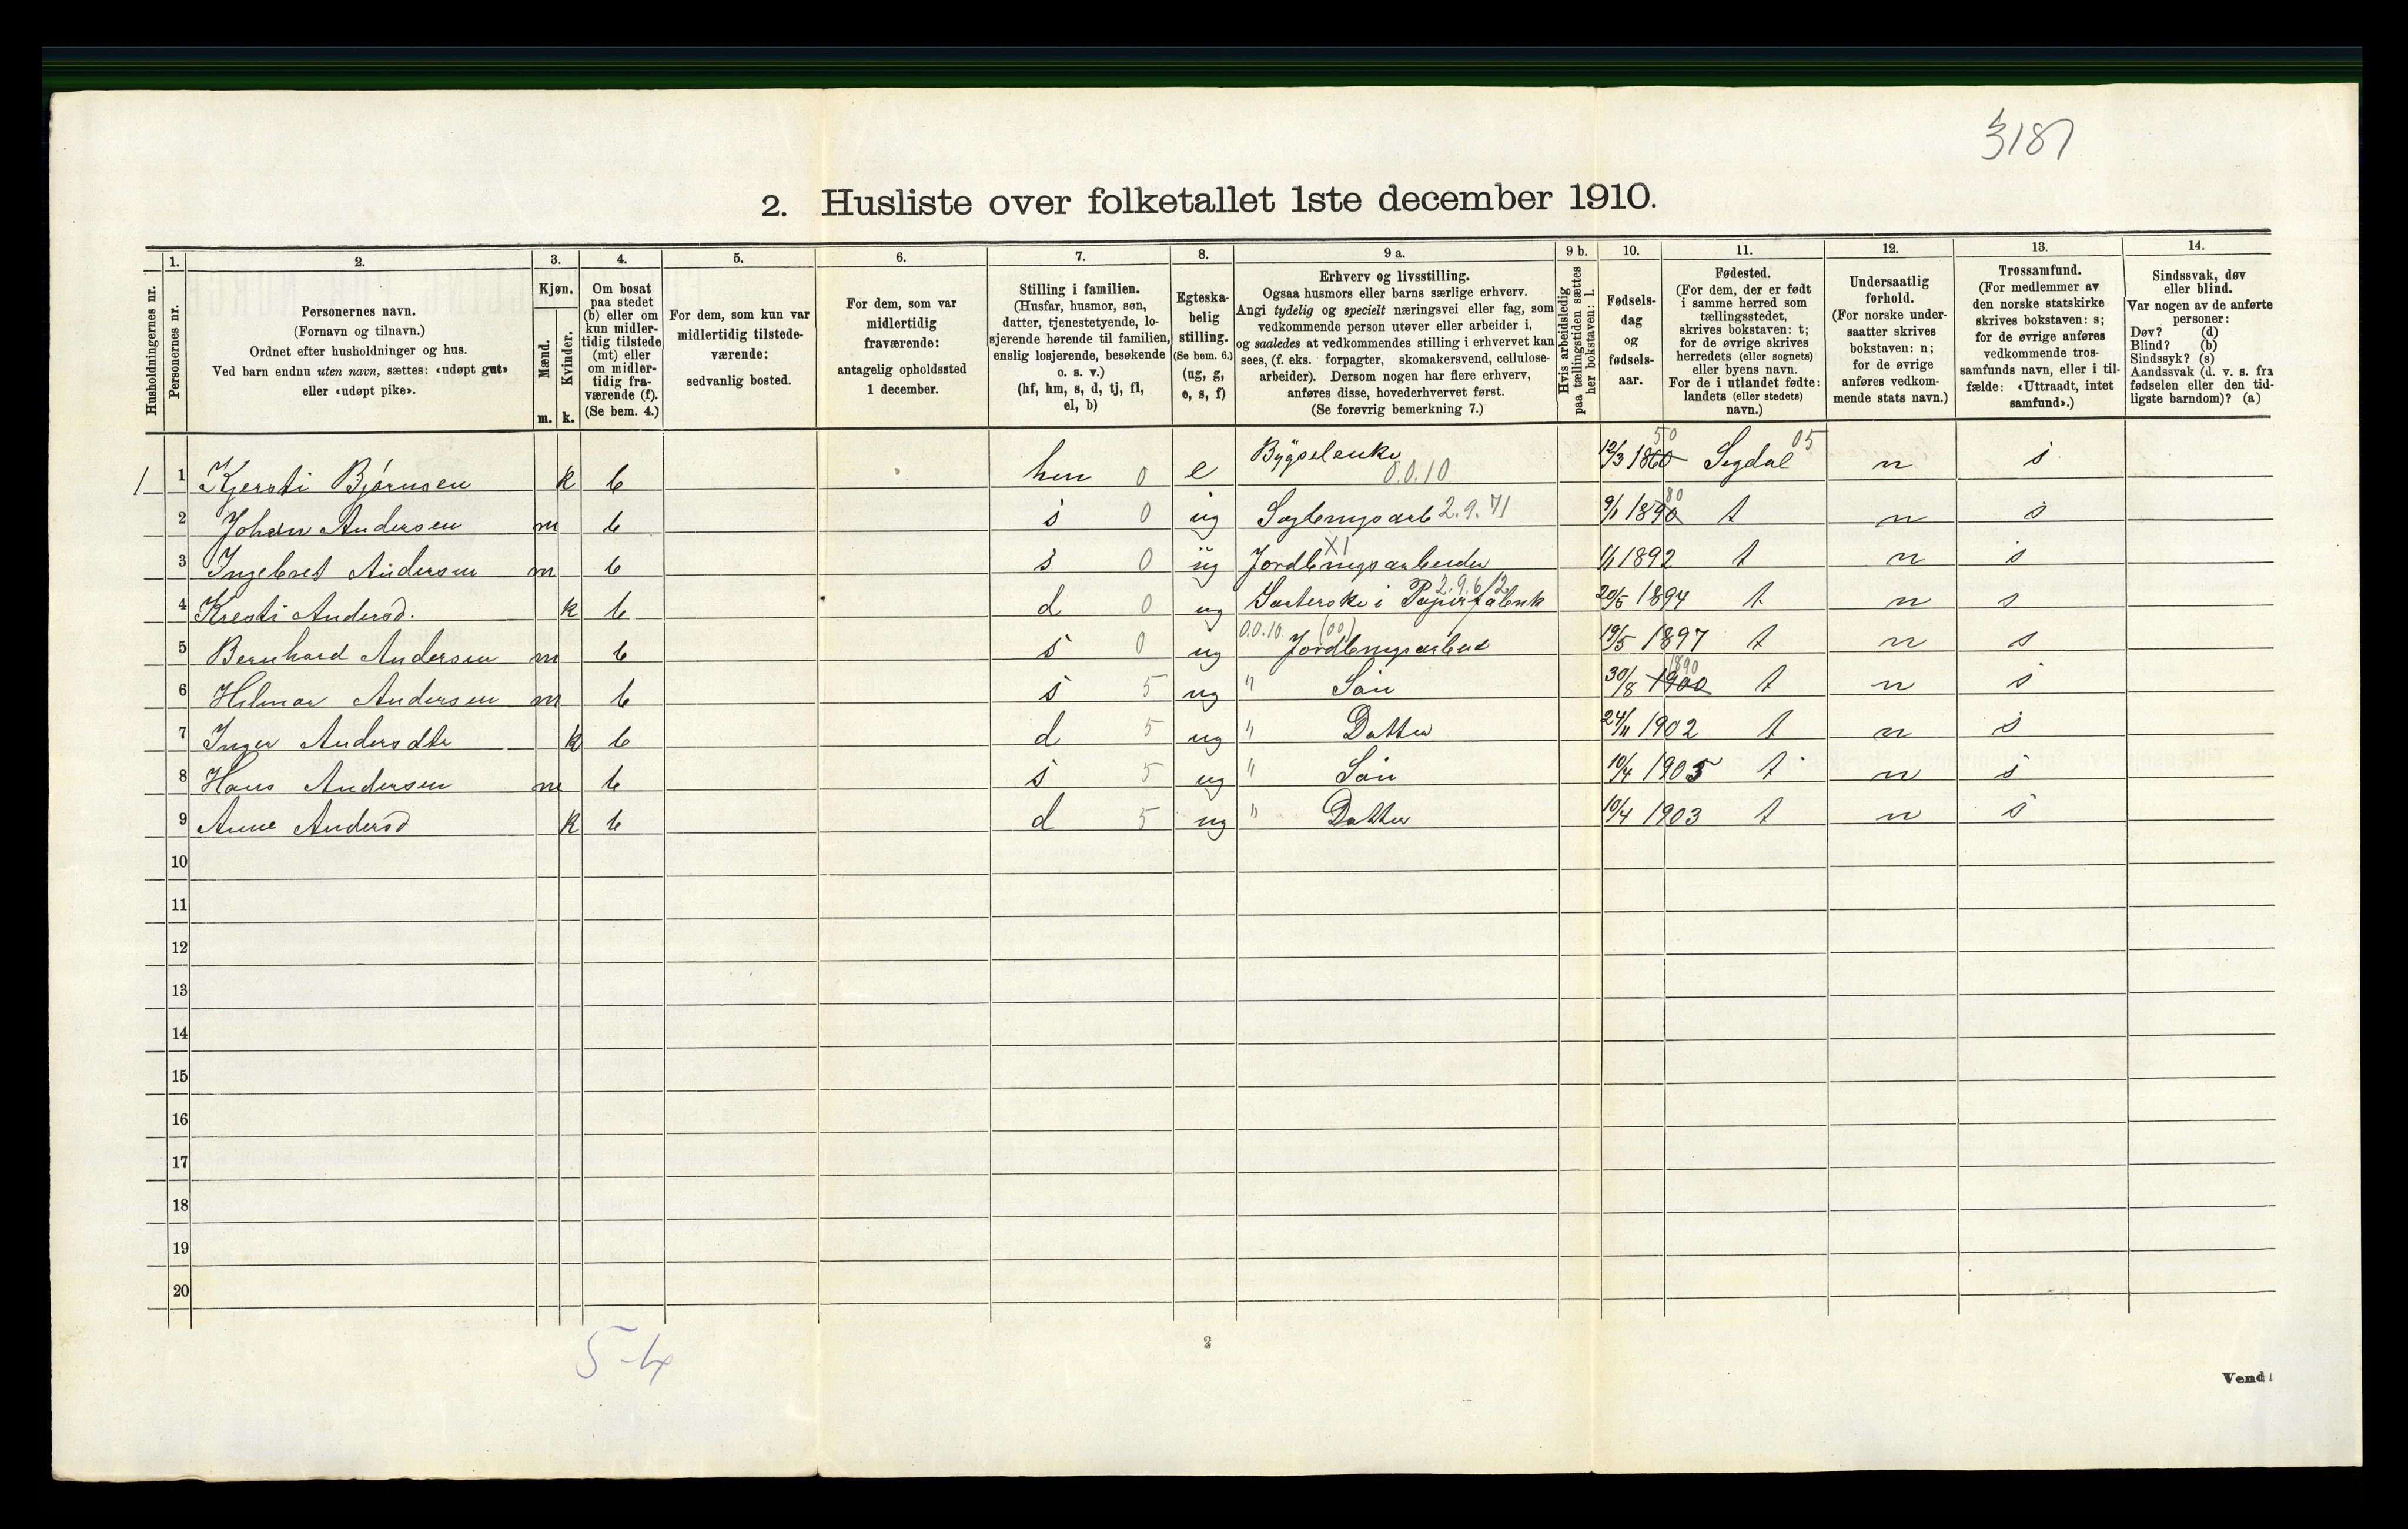 3187
2. Husliste over folketallet 1ste december 1910.
Husholdningernes nr.
1.
Personernes nr.
2.
Personernes navn.
(Fornavn og tilnavn.)
Ordnet efter husholdninger og hus.
Ved barn endnu uten navn, sættes: «udøpt gut»
eller «udøpt pike».
3.
Kjøn.
Mænd.
m.
Kvinder.
k.
4.
Om bosat
paa stedet
(b) eller om
kun midler-
tidig tilstede
(mt) eller
om midler-
tidig fra-
værende (f).
(Se bem. 4.)
5.
For dem, som kun var
midlertidig tilstede-
værende:
sedvanlig bosted.
6.
For dem, som var
midlertidig
fraværende:
antagelig opholdssted
1 december.
7.
Stilling i familien.
(Husfar, husmor, søn,
datter, tjenestetyende, lo-
sjerende hørende til familien,
enslig losjerende, besøkende
o. s. v.)
(hf, hm, s, d, tj, fl,
el, b)
8.
Egteska-
belig
stilling.
(Se bem. 6.)
(ug, g,
e, s, f)
9 a.
Erhverv og livsstilling.
Ogsaa husmors eller barns særlige erhverv.
Angi tydelig og specielt næringsvei eller fag, som
vedkommende person utøver eller arbeider i,
og saaledes at vedkommendes stilling i erhvervet kan
sees, (f. eks. forpagter, skomakersvend, cellulose-
arbeider). Dersom nogen har flere erhverv,
anføres disse, hovederhvervet først.
(Se forøvrig bemerkning 7.)
9 b.
Hvis arbeidsledig
paa tællingstiden sættes
her bokstaven: l.
10.
Fødsels-
dag
og
fødsels-
aar.
11.
Fødested.
(For dem, der er født
i samme herred som
tællingsstedet,
skrives bokstaven: t;
for de øvrige skrives
herredets (eller sognets)
eller byens navn.
For de i utlandet fødte:
landets (eller stedets)
navn.)
12.
Undersaatlig
forhold.
(For norske under-
saatter skrives
bokstaven: n;
for de øvrige
anføres vedkom-
mende stats navn.)
13.
Trossamfund.
(For medlemmer av
den norske statskirke
skrives bokstaven: s;
for de øvrige anføres
vedkommende tros-
samfunds navn, eller i til-
fælde: «Uttraadt, intet
samfund».)
14.
Sindssvak, døv
eller blind.
Var nogen av de anførte
personer:
Døv? (d)
Blind? (b)
Sindssyk? (s)
Aandssvak (d. v. s. fra
fødselen eller den tid-
ligste barndom)? (a)
1 1 Kjersti Bjørnsen k b hm 0 e Bygselenke 0.0.10 12/3 1860 50 Sigdal 05 n s
2 Johan Andersen m b s 0 ug 2.9.71 9/1 1890 80 t n s
3 Ingebret Andersen m b s 0 ug Jordbrugsarbeider X1 1/1 1892 t n s
4 Kresti Andersd. k b d 0 ug Sorterske i Papirfabrik 2.9.6/2 20/5 1894 t n s
5 Bernhard Andersen m b s 0 ug 0.0.10. (00) Jordbrugsarbeid 19/5 1897 t n s
6 Hilmar Andersen m b s 5 ug " Søn 30/8 1900 1890 t n s
7 Inger Andersdtr k b d 5 ug " Datter 24/11 1902 t n s
8 Hans Andersen m b s 5 ug " Søn 10/4 1905 t n s
9 Anne Andersd k b d 5 ug " Datter 10/4 1903 t n s
10
11
12
13
14
15
16
17
18
19
20
5-4
2
Vend!